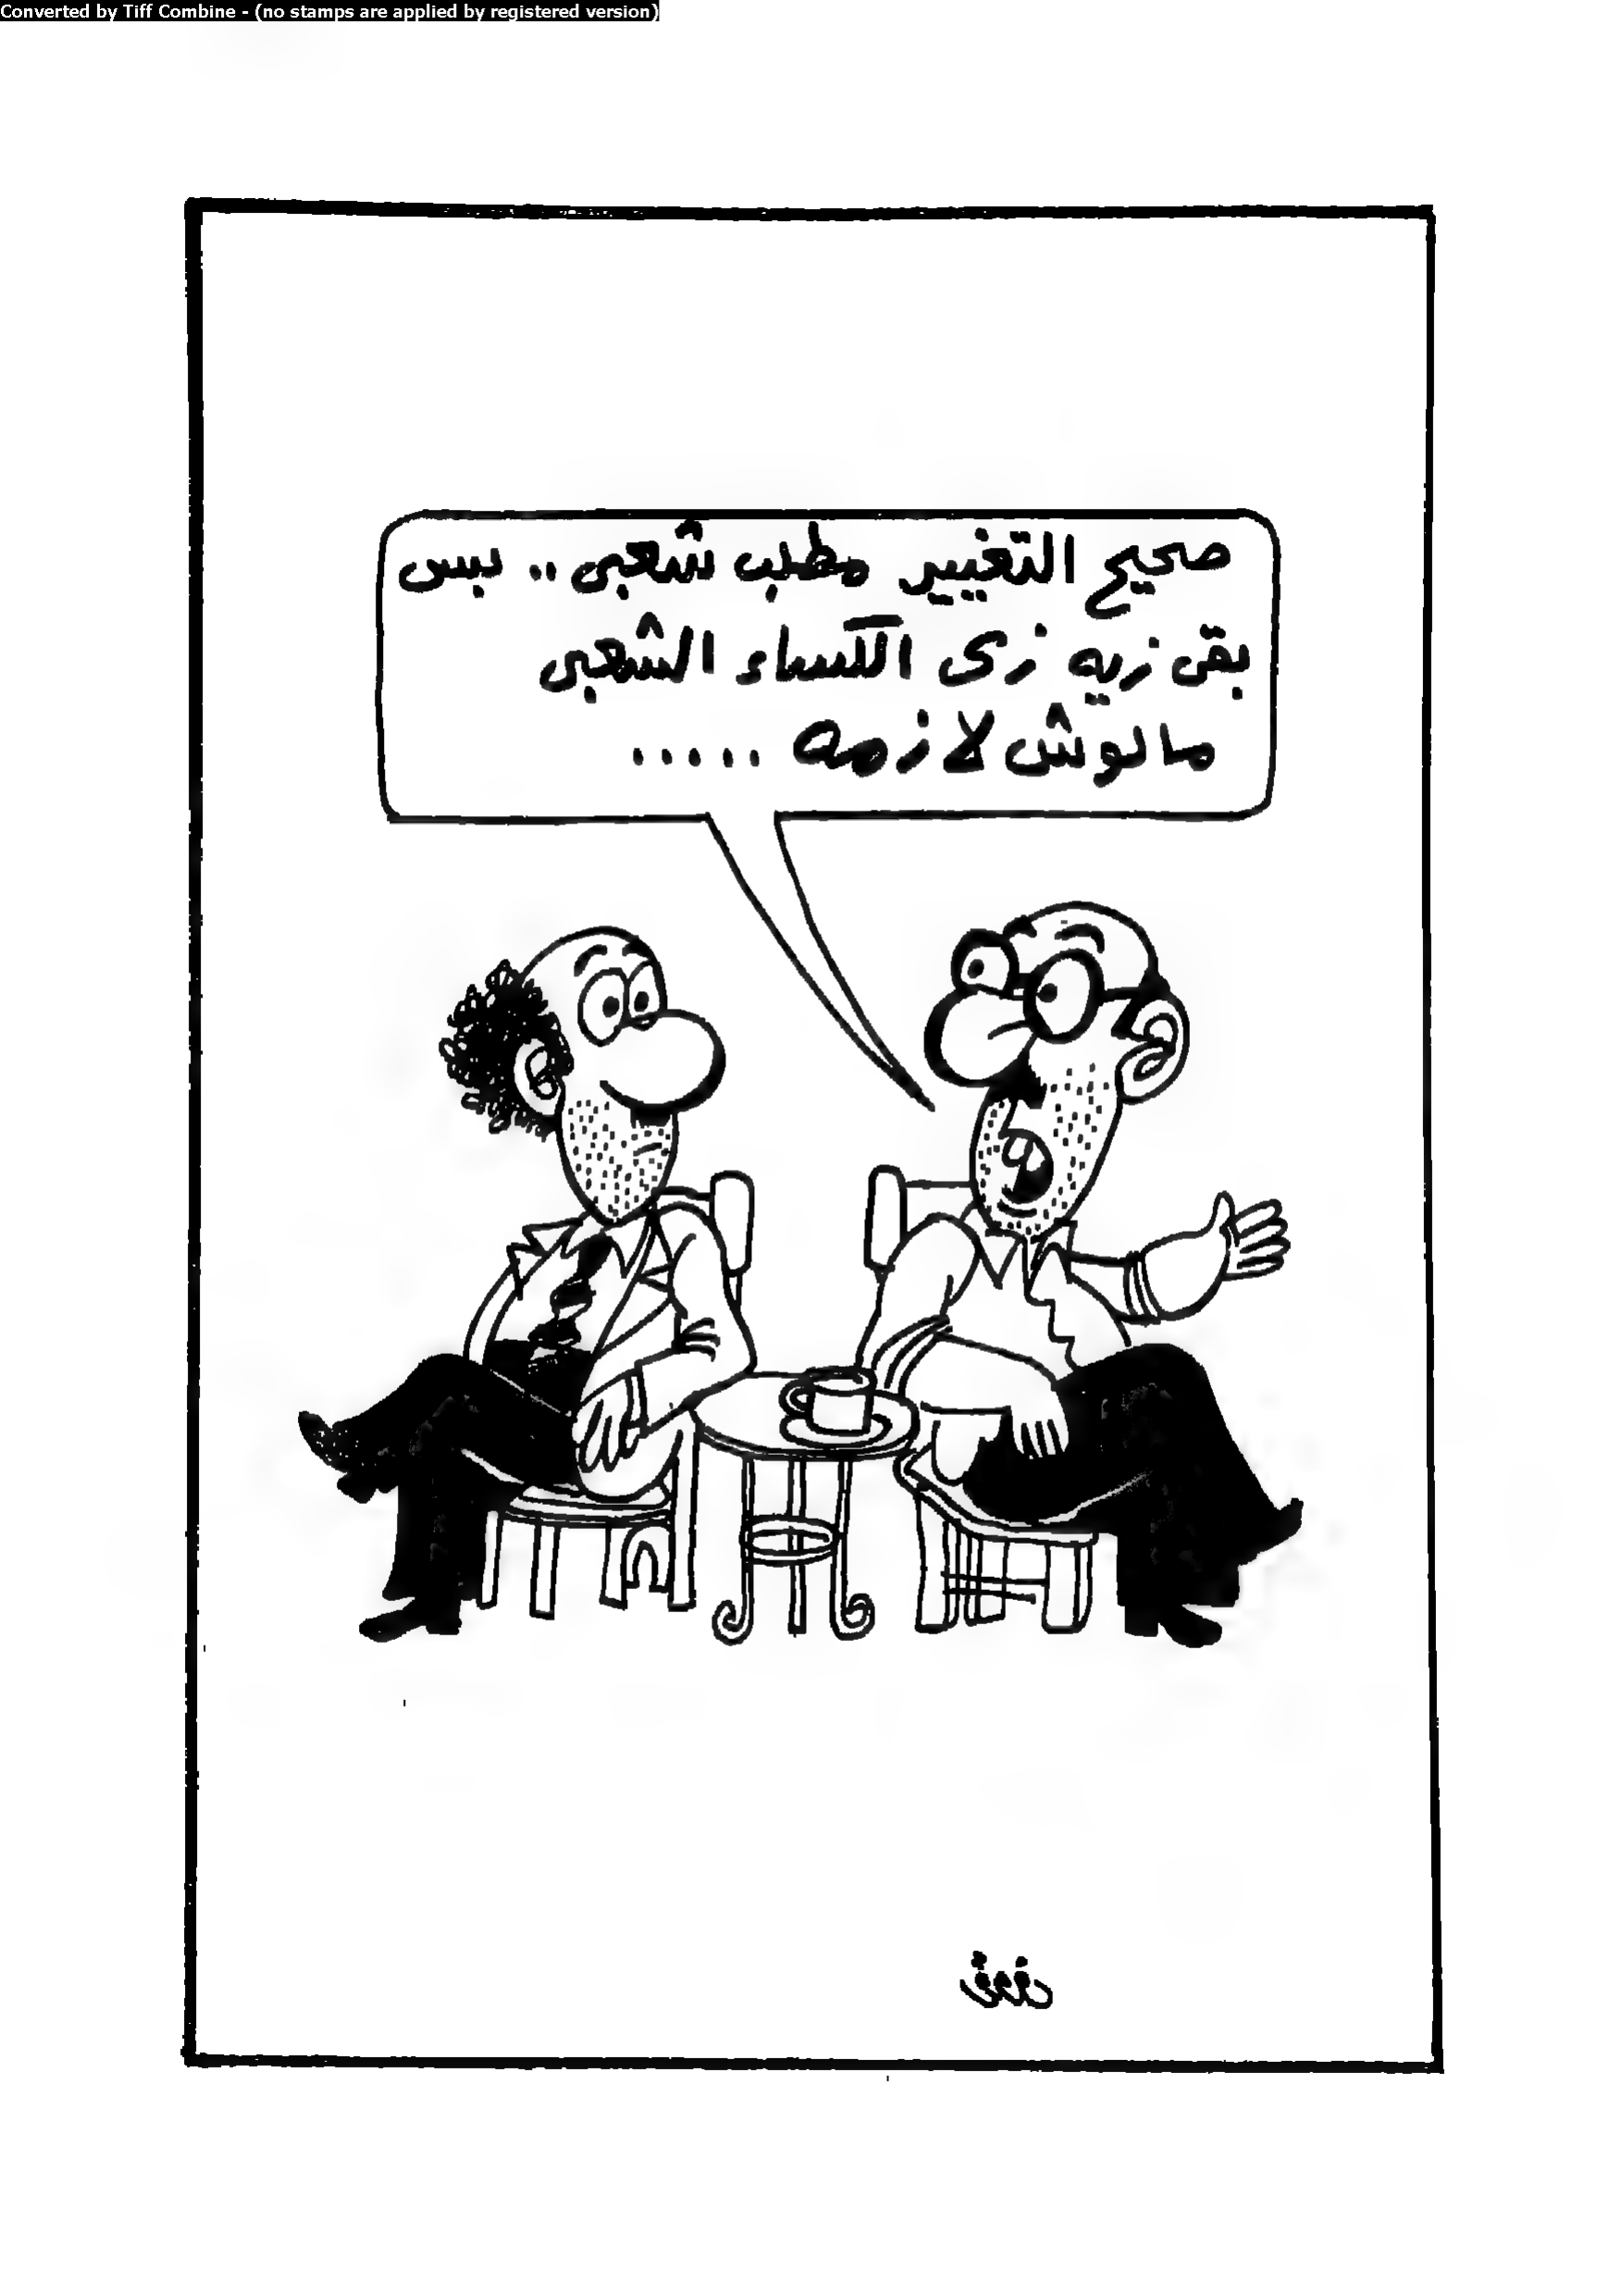 Converted by Tiff Combine - (no stamps are applied by registered version)
صحيح التغيير مطلب شعبى .. بس
بقى زيه زى الكساء الشعبى
مالوش لازمه .....